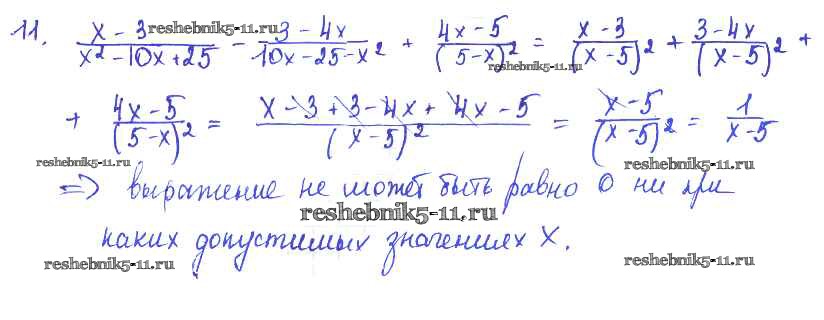 11. (x - 3)/(x² - 10x + 25) - (3 - 4x)/(10x - 25 - x²) + (4x - 5)/(5 - x)² = (x - 3)/(x - 5)² + (3 - 4x)/(x - 5)² +
reshebnik5-11.ru
reshebnik5-11.ru
+ (4x - 5)/(5 - x)² = (x - 3 + 3 - 4x + 4x - 5)/(x - 5)² = (x - 5)/(x - 5)² = 1/(x - 5)
reshebnik5-11.ru reshebnik5-11.ru
=> выражение не может быть равно 0 ни при
reshebnik5-11.ru
каких допустимых значениях x.
reshebnik5-11.ru reshebnik5-11.ru